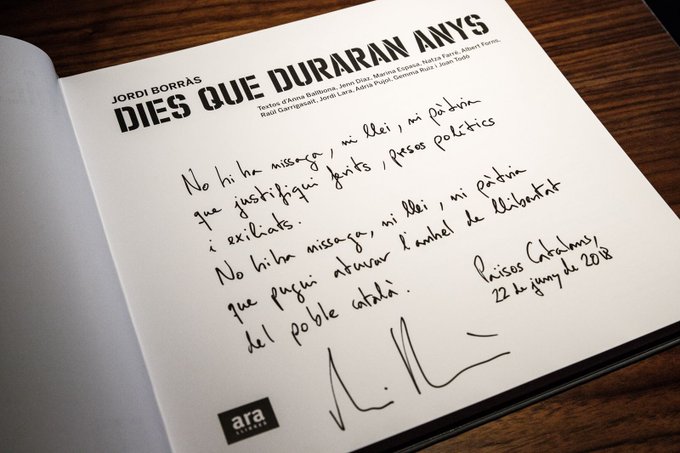 JORDI BORRÀS
DIES QUE DURARAN ANYS
Textos d'Anna Ballbona, Jenn Díaz, Marina Espasa, Natza Farré, Albert Forns,
Raül Garrigasait, Jordi Lara, Adrià Pujol, Gemma Ruiz i Joan Todó
No hi ha nissaga, ni llei, ni pàtria
que justifiqui ferits, presos polítics
i exiliats.
No hi ha nissaga, ni llei, ni pàtria
que pugui aturar l'anhel de llibertat
del poble català.
Països Catalans,
22 de juny de 2018
ara
LLIBRES